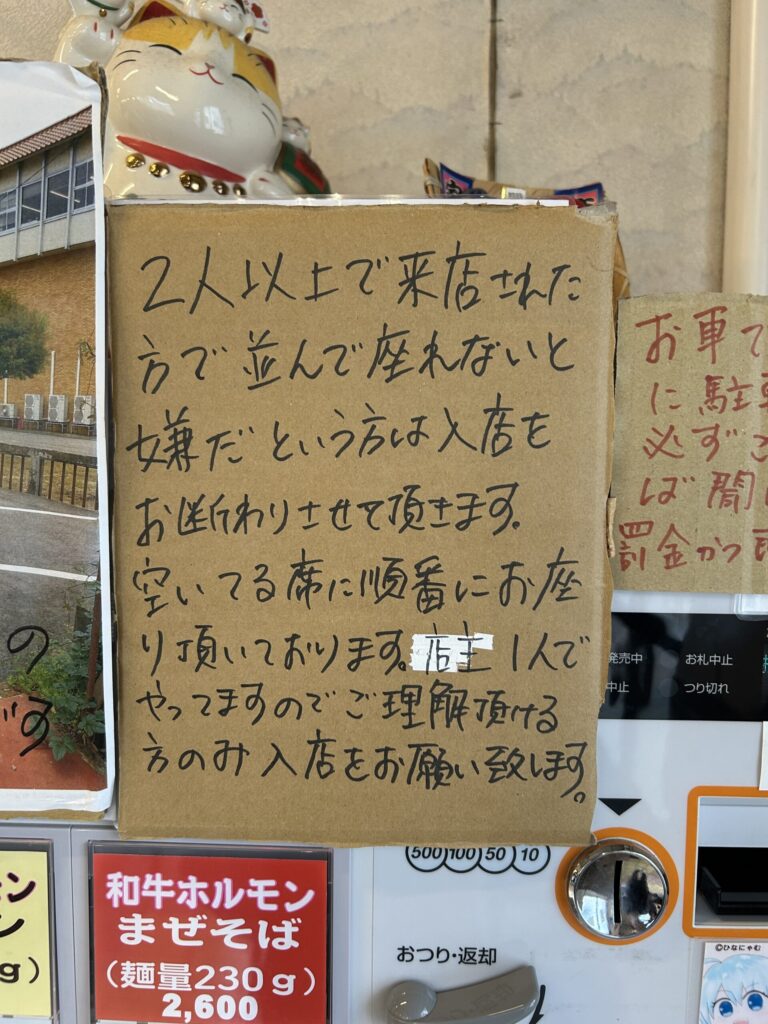 2人以上で来店された
方で並んで座れないと
嫌だという方は入店を
お断わりさせて頂きます.
空いてる席に順番にお座
り頂いております。店主1人で
やってますのでご理解頂ける
方のみ入店をお願い致します。
お車で
に駐車
必ず
ば罰
罰金かつ
の
です
発売中
お札中止
中止
つり切れ
500 100 50 10
おつり・返却
和牛ホルモン
まぜそば
(麺量230g)
2,600
モン
ン
g)
©ひなにゃむ